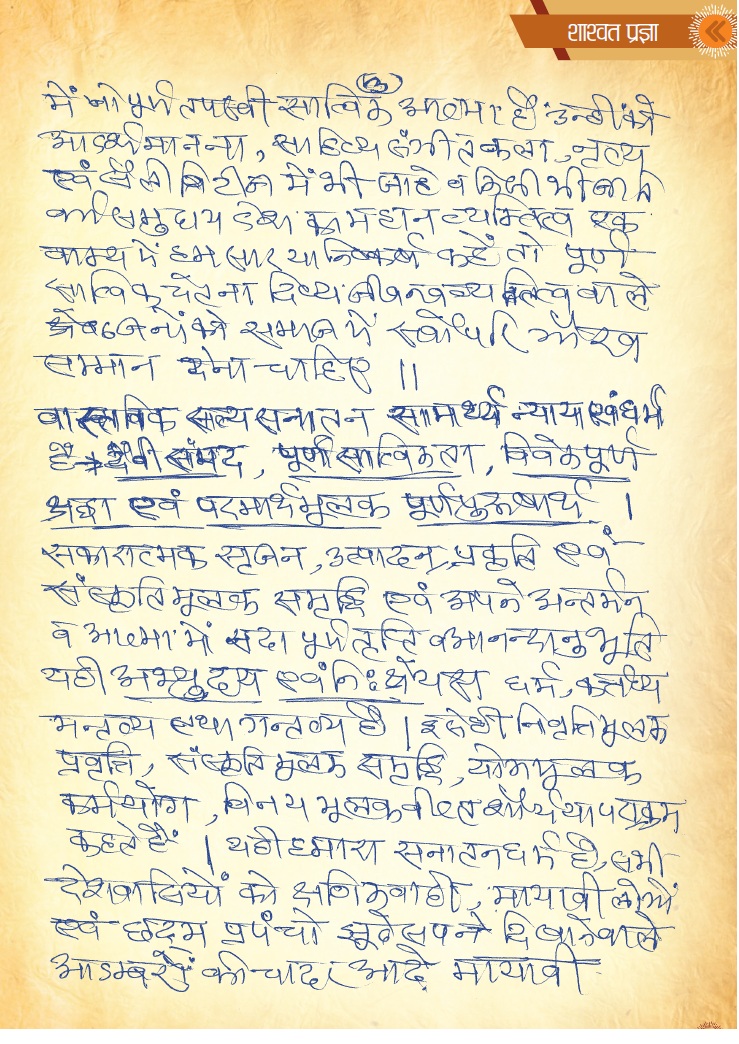 शाश्वत प्रज्ञा
(3)
में जो पूर्ण तपस्वी सात्विक आत्मा हैं उन्हीं को
आदर्श मानना, साहित्य संगीत कला, नृत्य
एवं में भी चाहे व किसी भी जाति
वर्ग समुदाय देश का महान व्यक्तित्व एक
वाक्य में हम सार या निष्कर्ष कहें तो पूर्ण
सात्विक चेतना दिव्य जीवन व्यक्तित्व वाले
श्रेष्ठ जनों को समाज में सर्वोपरि गौरव
सम्मान देना चाहिए ।।
वास्तविक सत्य सनातन सामर्थ्य न्याय एवं धर्म
है → दैवी संपद, पूर्ण सात्विकता, विवेकपूर्ण
श्रद्धा एवं परमार्थमूलक पूर्ण पुरूषार्थ ।
सकारात्मक सृजन, उत्पादन, प्रकृति एवं
संस्कृति मूलक समृद्धि एवं अपने अन्तर्मन
व आत्मा में सदा पूर्ण तृप्ति व आनन्दानुभूति
यही अभ्युदय एवं निःश्रेयस धर्म, कर्त्तव्य
मन्तव्य तथा गन्तव्य है । इसे ही निवृत्ति मूलक
प्रवृत्ति, संस्कृति मूलक समृद्धि, योगमूलक
कर्मयोग, विनय मूलक वीरत शौर्य या पराक्रम
कहते हैं । यही हमारा सनातन धर्म है, सभी
देशवासियों को क्षणिकवादी, मायावी लोगों
एवं छद्म प्रपंचों झूठे सपने दिखाने वाले
आडम्बरों की चादर ओढ़े मायावी